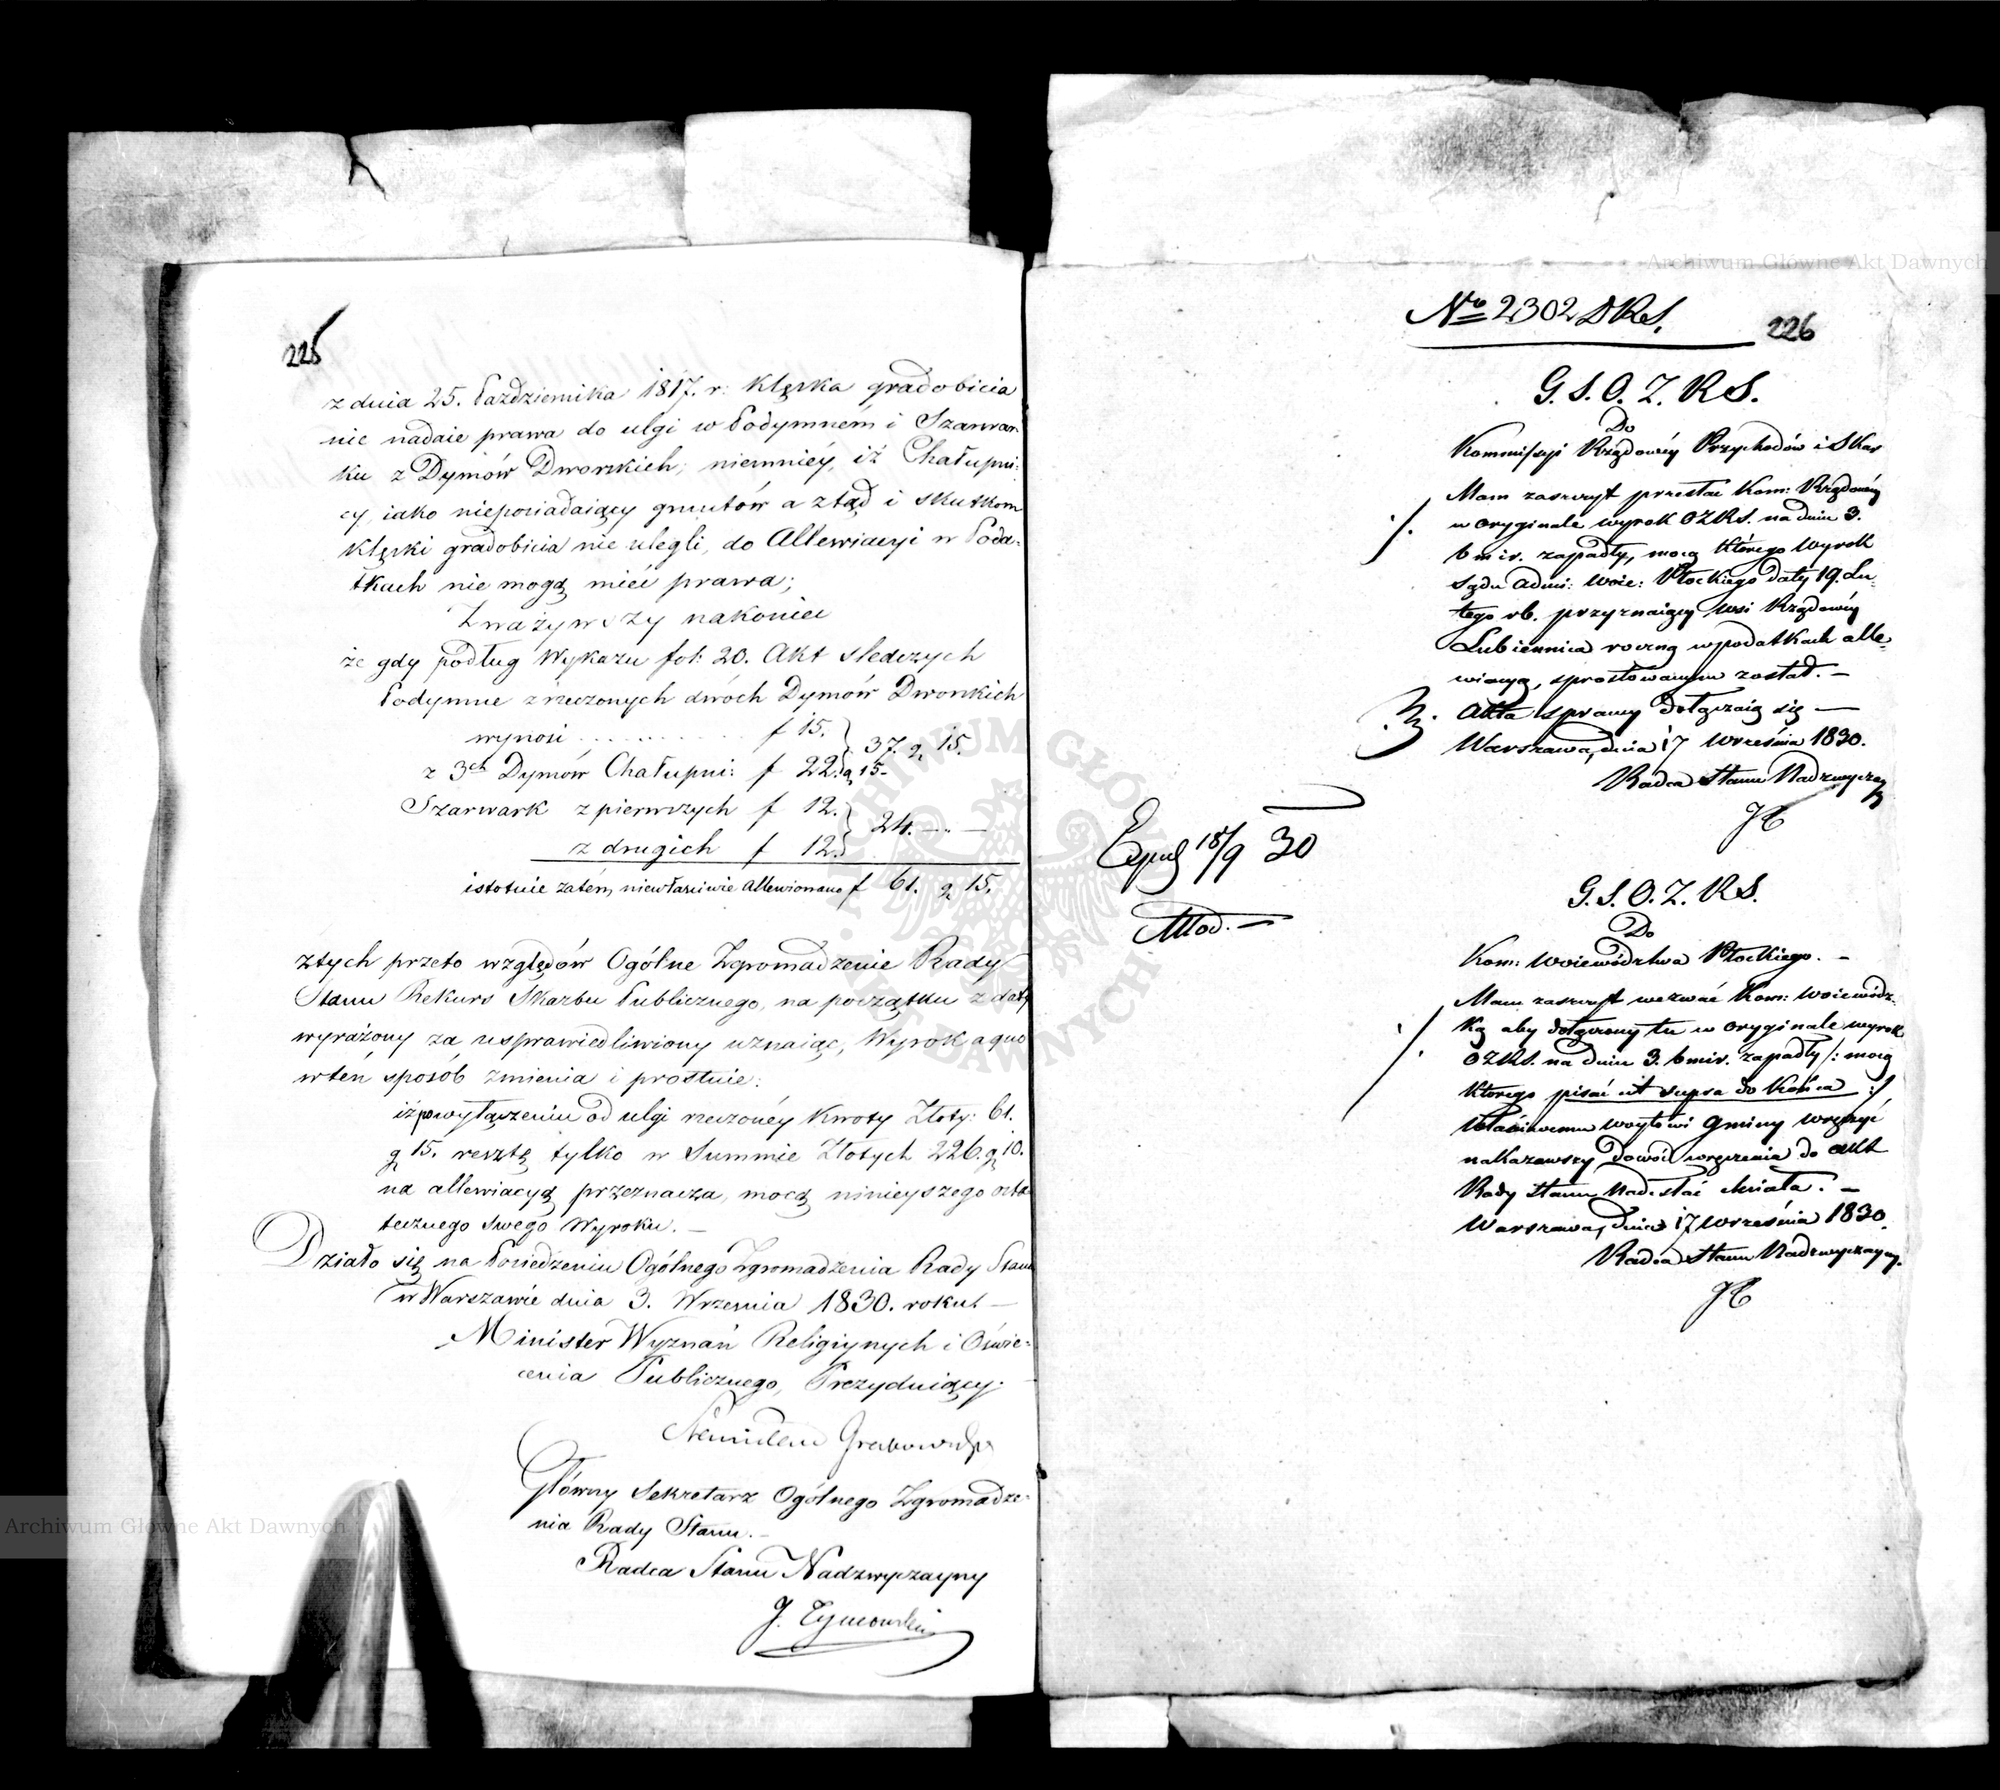 225
z dnia 25. Października 1817. r: klęska gradobicia
nie nadaie prawa do ulgi w Podymném i Szarwar-
ku z Dymów Dworskich; niemniéy, iż Chałupni:
cy, iako nieposiadaiący gruntów a ztąd i skutkom
klęski gradobicia nie ulegli, do Allewiacyi w Poda-
tkach nie mogą mieć prawa;
Zważywszy nakoniec
że gdy podług Wykazu fol: 20. Akt sledczych
Podymne z rzeczonych dwóch Dymów Dworskich
wynosi . . . . . . . . . . f 15.
37. g 15.
z 3ch Dymów Chałupni: f 22. g 15.
Szarwark z pierwszych f 12.
24. — „ —
z drugich f 12.
istotnie zatém, niewłaściwie allewiowano f 61. g 15.
z tych przeto względów Ogólne Zgromadzenie Rady
Stanu Rekurs Skarbu Publicznego, na początku z daty
wyrażony za usprawiedliwiony uznaiąc, Wyrok a quo
w ten sposób zmienia i prostuie:
iż po wyłączeniu od ulgi rzeczonéy kwoty Złoty: 61.
g 15. resztę tylko w Summie Złotych 226. g 10.
na allewiacyą przeznacza, mocą ninieyszego osta
tecznego swego Wyroku. —
Działo się na Posiedzeniu Ogólnego Zgromadzenia Rady Stanu
w Warszawie dnia 3. Września 1830. roku. —
Minister Wyznań Religiynych i Oświe-
cenia Publicznego, Prezyduiący.
Stanisław Grabowski
Główny Sekretarz Ogólnego Zgromadze-
nia Rady Stanu. —
Radca Stanu Nadzwyczayny
J. Tymowski
No 2302 DRS.
226
G. S. O. Z. R S.
Do
Kommissyi Rządowéy Przychodów i Skar
Mam zaszczyt przesłać Kom: Rządowéy
w oryginale wyrok OZRS. na dniu 3.
b m i r. zapadły, mocą którego wyrok
Sądu Admi: Woie: Płockiego daty 19. Lu-
tego r b. przyznaiący wsi Rządowéy
Lubiennica roczną w podatkach alle-
wiacyą, sprostowanym został. —
Akta sprawy dołączaią się —
Warszawa, dnia 17 Września 1830.
Radca Stanu Nadzwyczay
Exped 18/9 30
G. S. O. Z. R S.
Do
Kom: Woiewództwa Płockiego. —
Mam zaszczyt wezwać Kom: Woiewódz-
ką aby dołączony tu w oryginale wyrok
OZRS. na dniu 3. b m i r. zapadły /: mocą
którego pisać ut supra do końca :/
właściwemu woytowi Gminy wręczyć
nakazawszy dowód wręczenia do akt
Rady Stanu nadesłać chciała. —
Warszawa, dnia 17 Września 1830.
Radca Stanu Nadzwyczayny.
Archiwum Główne Akt Dawnych
Archiwum Główne Akt Dawnych
ARCHIWUM GŁÓWNE AKT DAWNYCH